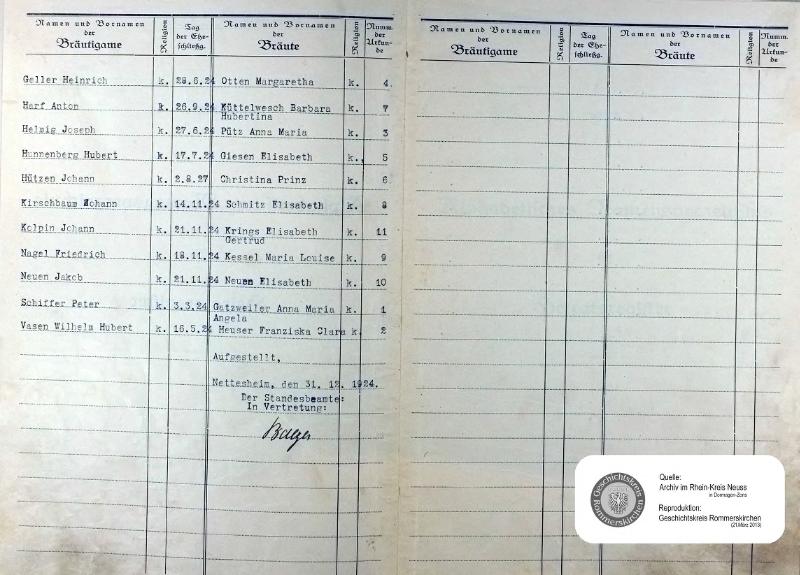 Namen und Vornamen der Bräutigame Religion Tag der Ehe- schließg. Namen und Vornamen der Bräute Religion Numm. der Urkun- de
Geller Heinrich k. 28.6.24 Otten Margaretha k. 4
Harf Anton k. 26.9.24 Küttelwesch Barbara k. 7
Hubertina
Helmig Joseph k. 27.6.24 Pütz Anna Maria k. 3
Hunnenberg Hubert k. 17.7.24 Giesen Elisabeth k. 5
Hützen Johann k. 2.8.27 Christina Prinz k. 6
Kirschbaum Johann k. 14.11.24 Schmitz Elisabeth k. 8
Kolpin Johann k. 21.11.24 Krings Elisabeth k. 11
Gertrud
Nagel Friedrich k. 18.11.24 Kessel Maria Louise k. 9
Neuen Jakob k. 21.11.24 Neuen Elisabeth k. 10
Schiffer Peter k. 3.3.24 Gatzweiler Anna Maria k. 1
Angela
Vasen Wilhelm Hubert k. 16.5.24 Heuser Franziska Clara k. 2
Aufgestellt,
Nettesheim, den 31. 12. 1924.
Der Standesbeamte:
In Vertretung:
Namen und Vornamen der Bräutigame Religion Tag der Ehe- schließg. Namen und Vornamen der Bräute Religion Numm. der Urkun- de
Geschichtskreis Rommerskirchen
Quelle:
Archiv im Rhein-Kreis Neuss
in Dormagen-Zons
Reproduktion:
Geschichtskreis Rommerskirchen
(21.März 2013)